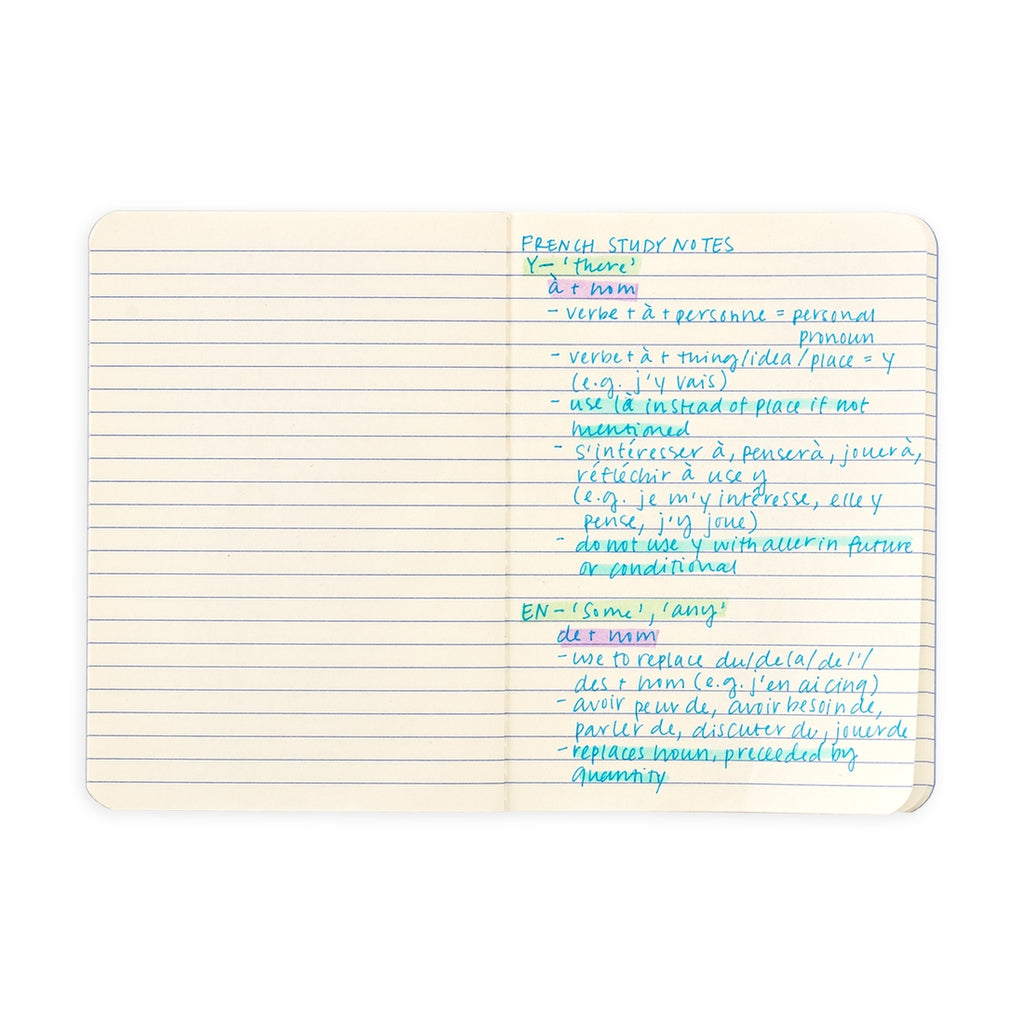 FRENCH STUDY NOTES
Y – 'there'
à + nom
- verbe + à + personne = personal
pronoun
- verbe + à + thing/idea/place = y
(e.g. j'y vais)
- use là instead of place if not
mentioned
- s'intéresser à, penser à, jouer à,
réfléchir à use y
(e.g. je m'y intéresse, elle y
pense, j'y joue)
- do not use y with aller in future
or conditional
EN – 'some', 'any'
de + nom
- use to replace du/de la/de l'/
des + nom (e.g. j'en ai cinq)
- avoir peur de, avoir besoin de,
parler de, discuter du, jouer de
- replaces noun, preceeded by
quantity